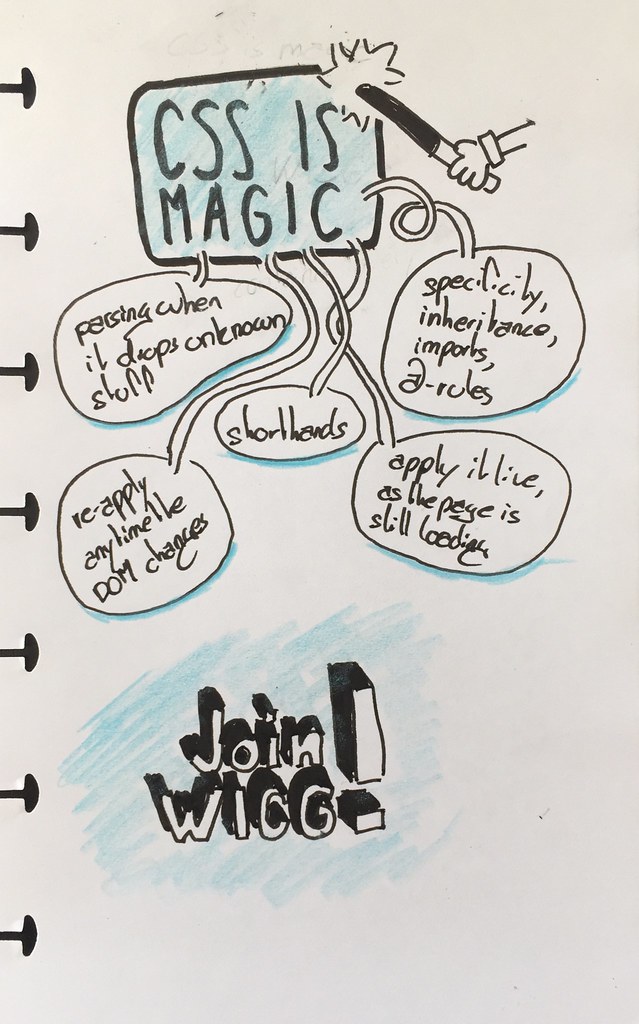 CSS IS
MAGIC
parsing when
it drops unknown
stuff
specificity,
inheritance,
imports,
@-rules
shorthands
re-apply
anytime the
DOM changes
apply it live,
as the page is
still loading
Join
WICG!